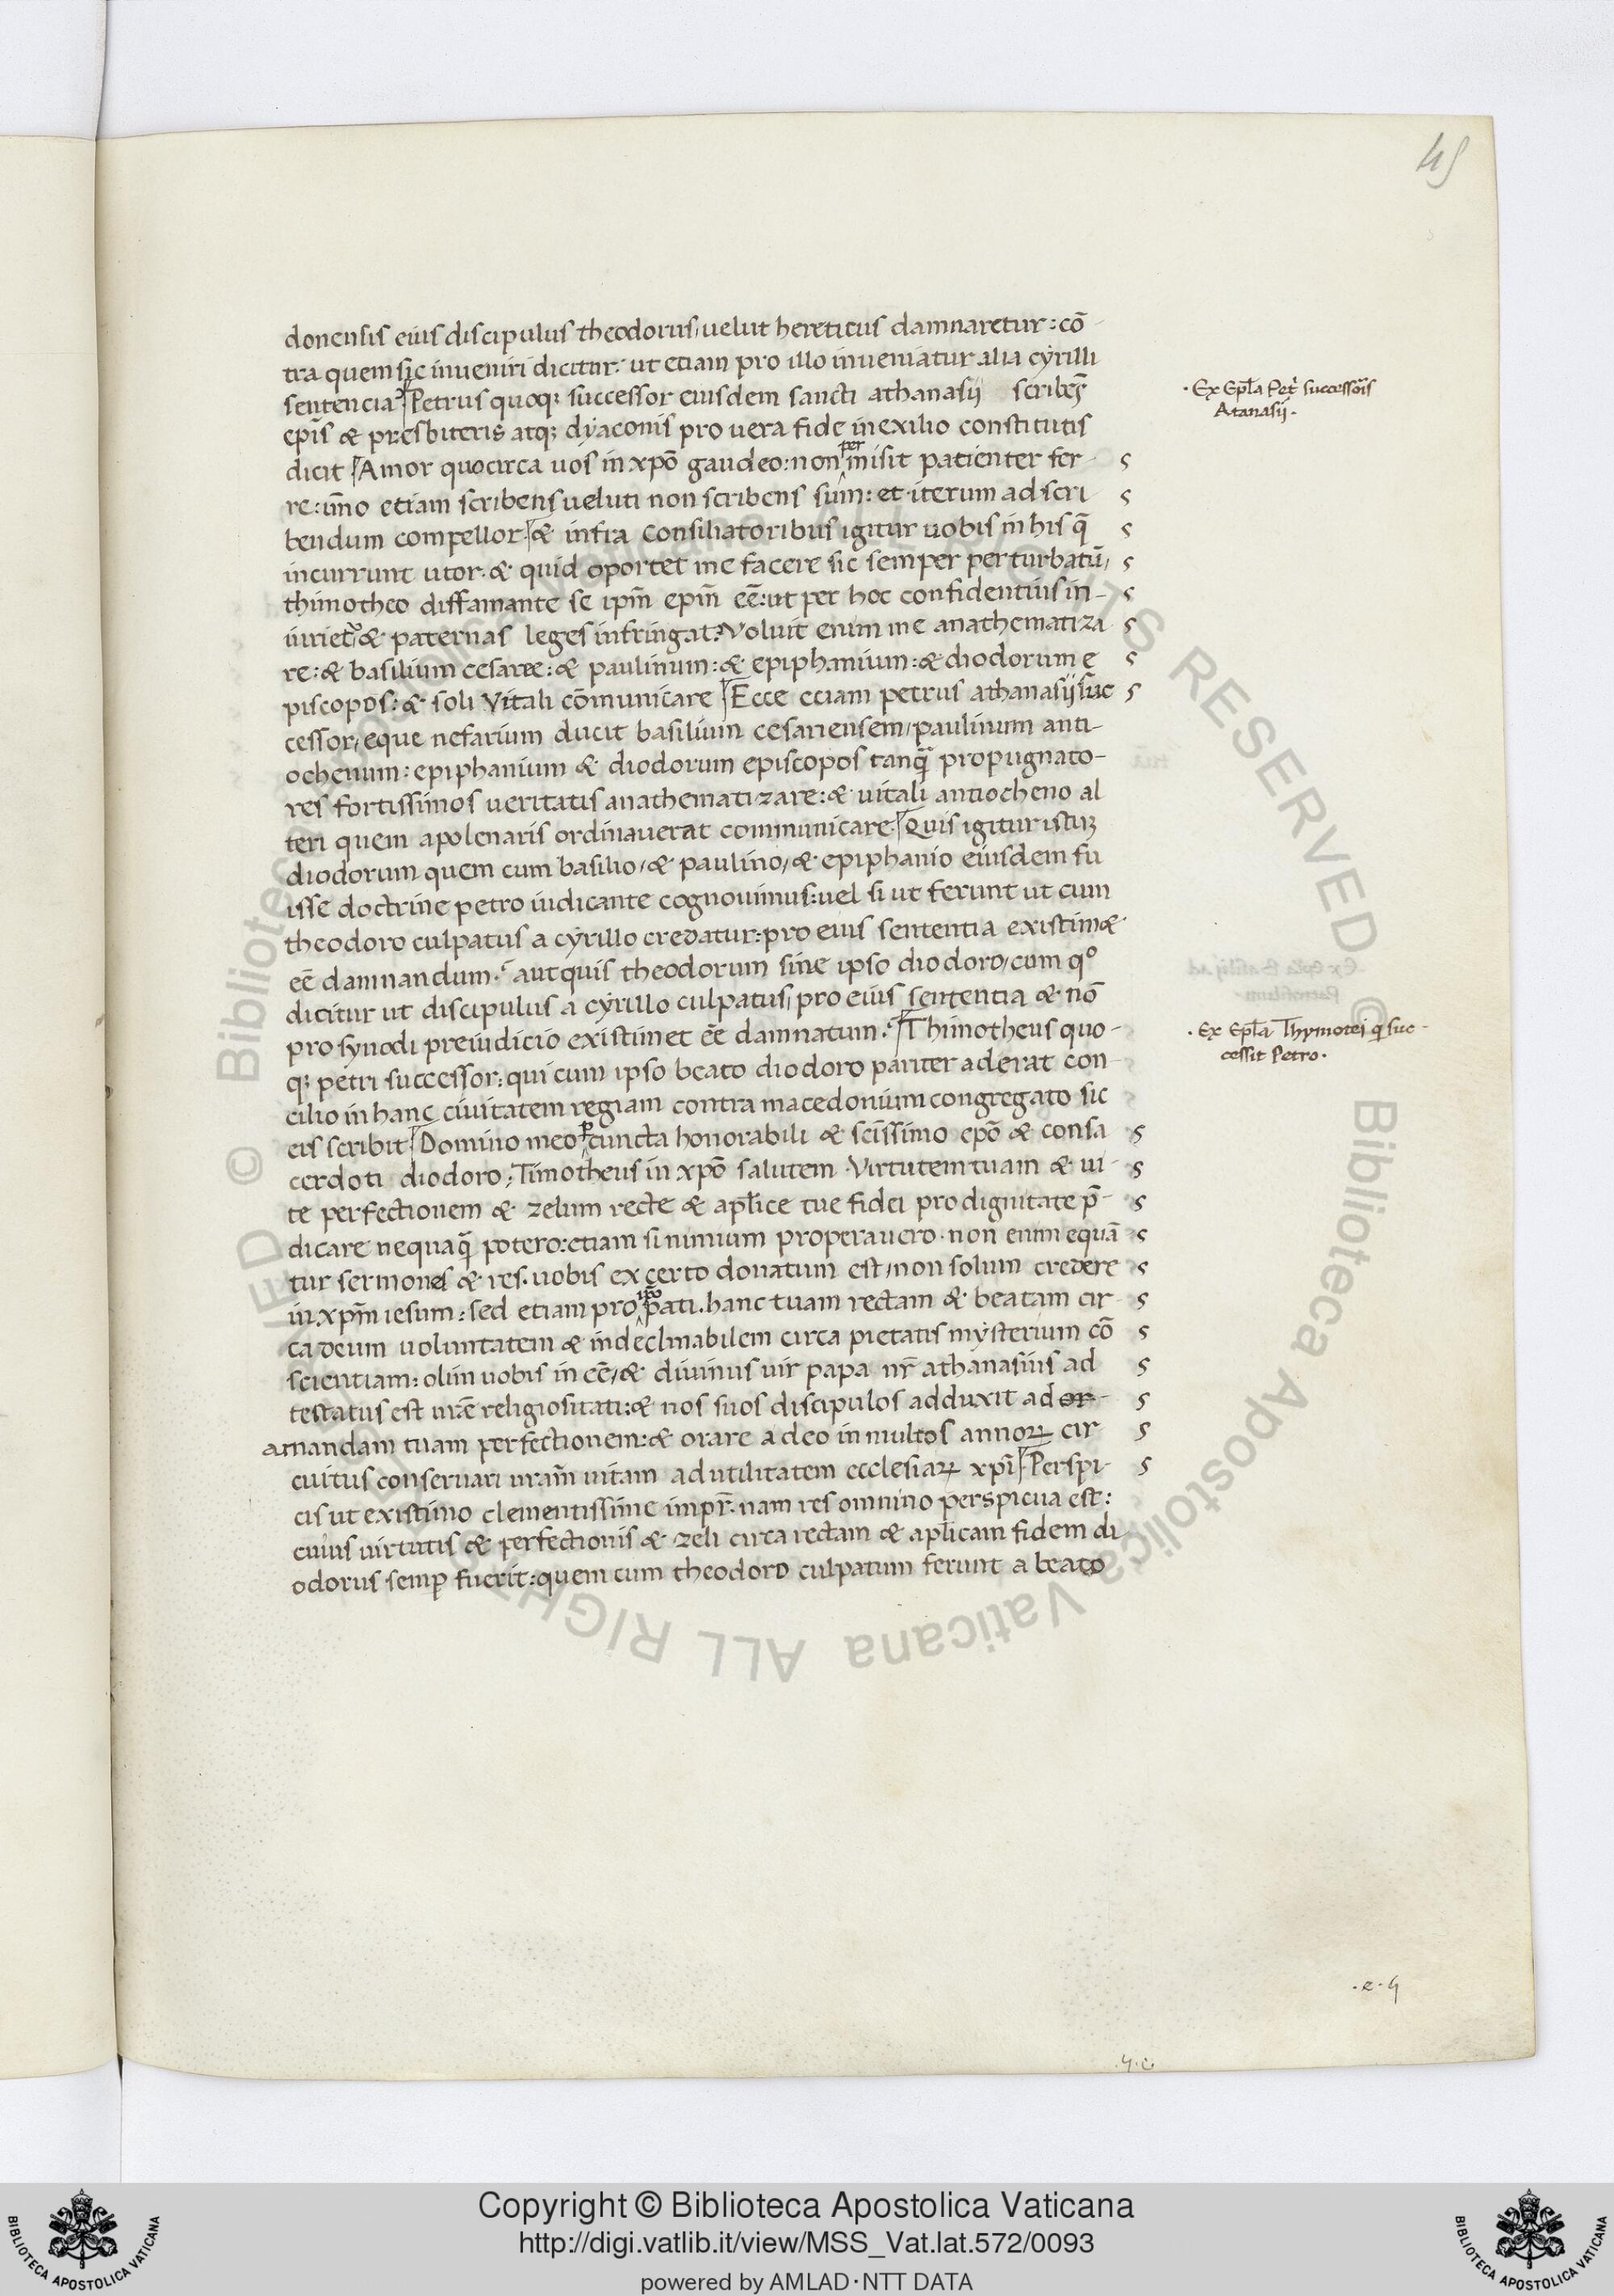 45
donensis eius discipulus theodorus, uelut hereticus damnaretur: cō
tra quem sic inueniri dicitur: ut etiam pro illo inueniatur alia cyrilli
sentencia? Petrus quoq; successor eiusdem sancti athanasij scribēs
· Ex Epl̄a Petri successoris
Atanasij ·
ep̄is & presbiteris atq; dyaconis pro uera fide in exilio constitutis
dicit Amor quocirca uos in xp̄o gaudeo: non permisit patienter fer- s
re: im̄o etiam scribens ueluti non scribens sum: et iterum ad scri s
bendum compellor. & infra Consiliatoribus igitur uobis in his q̄ s
incurrunt utor. & quid oportet me facere sic semper perturbatū, s
thimotheo diffamante se ip̄m ep̄m eē: ut per hoc confidentius in- s
iuriet & paternas leges infringat? Voluit enim me anathematiza s
re: & basilium cesaree: & paulinum: & epiphanium: & diodorum e s
piscopos: & soli Vitali cōmunicare Ecce eciam petrus athanasij suc s
cessor, eque nefarium ducit basilium cesariensem, paulinum anti-
ochenum: epiphanium & diodorum episcopos tanq̄ propugnato-
res fortissimos ueritatis anathematizare: & uitali antiocheno al
teri quem apolenaris ordinauerat communicare. Quis igitur istuz
diodorum quem cum basilio, & paulino, & epiphanio eiusdem fu
isse doctrine petro iudicante cognouimus: uel si ut ferunt ut cum
theodoro culpatus a cyrillo credatur: pro eius sententia existim&
eē damnandum? aut quis theodorum sine ipso diodoro, cum qº
dicitur ut discipulus a cyrillo culpatus, pro eius sententia & nō
pro synodi preiudicio existimet eē damnatum? Thimotheus quo-
· Ex Epl̄a Thymotei q̄ suc-
cessit Petro ·
q; petri successor: qui cum ipso beato diodoro pariter aderat con-
cilio in hanc ciuitatem regiam contra macedonium congregato sic
eis scribit Domino meo p cuncta honorabili & sc̄issimo ep̄o & consa s
cerdoti diodoro; Timotheus in xp̄o salutem. Virtutem tuam & ui- s
te perfectionem & zelum recte & apl̄ice tue fidei pro dignitate p̄- s
dicare nequaq̄ potero: etiam si nimium properauero. non enim equā s
tur sermones & res. uobis ex certo donatum est, non solum credere s
in xp̄m iesum: sed etiam pro ip̄o pati. hanc tuam rectam & beatam cir- s
ca deum uoluntatem & indeclinabilem circa pietatis mysterium cō s
scientiam: olim uobis in eē, & diuinus uir papa nr̄ athanasius ad s
testatus est ur̄e religiositati: & nos suos discipulos adduxit ad or- s
amandam tuam perfectionem: & orare a deo in multos annoꝝ cir s
cuitus conseruari ur̄am uitam ad utilitatem ecclesiaꝝ xp̄i Perspi- s
cis ut existimo clementissime impr̄. nam res omnino perspicua est:
cuius uirtutis & perfectionis & zeli circa rectam & apl̄icam fidem di
odorus semp fuerit: quem cum theodoro culpatum ferunt a beato
· e · 4
Copyright © Biblioteca Apostolica Vaticana
http://digi.vatlib.it/view/MSS_Vat.lat.572/0093
powered by AMLAD·NTT DATA